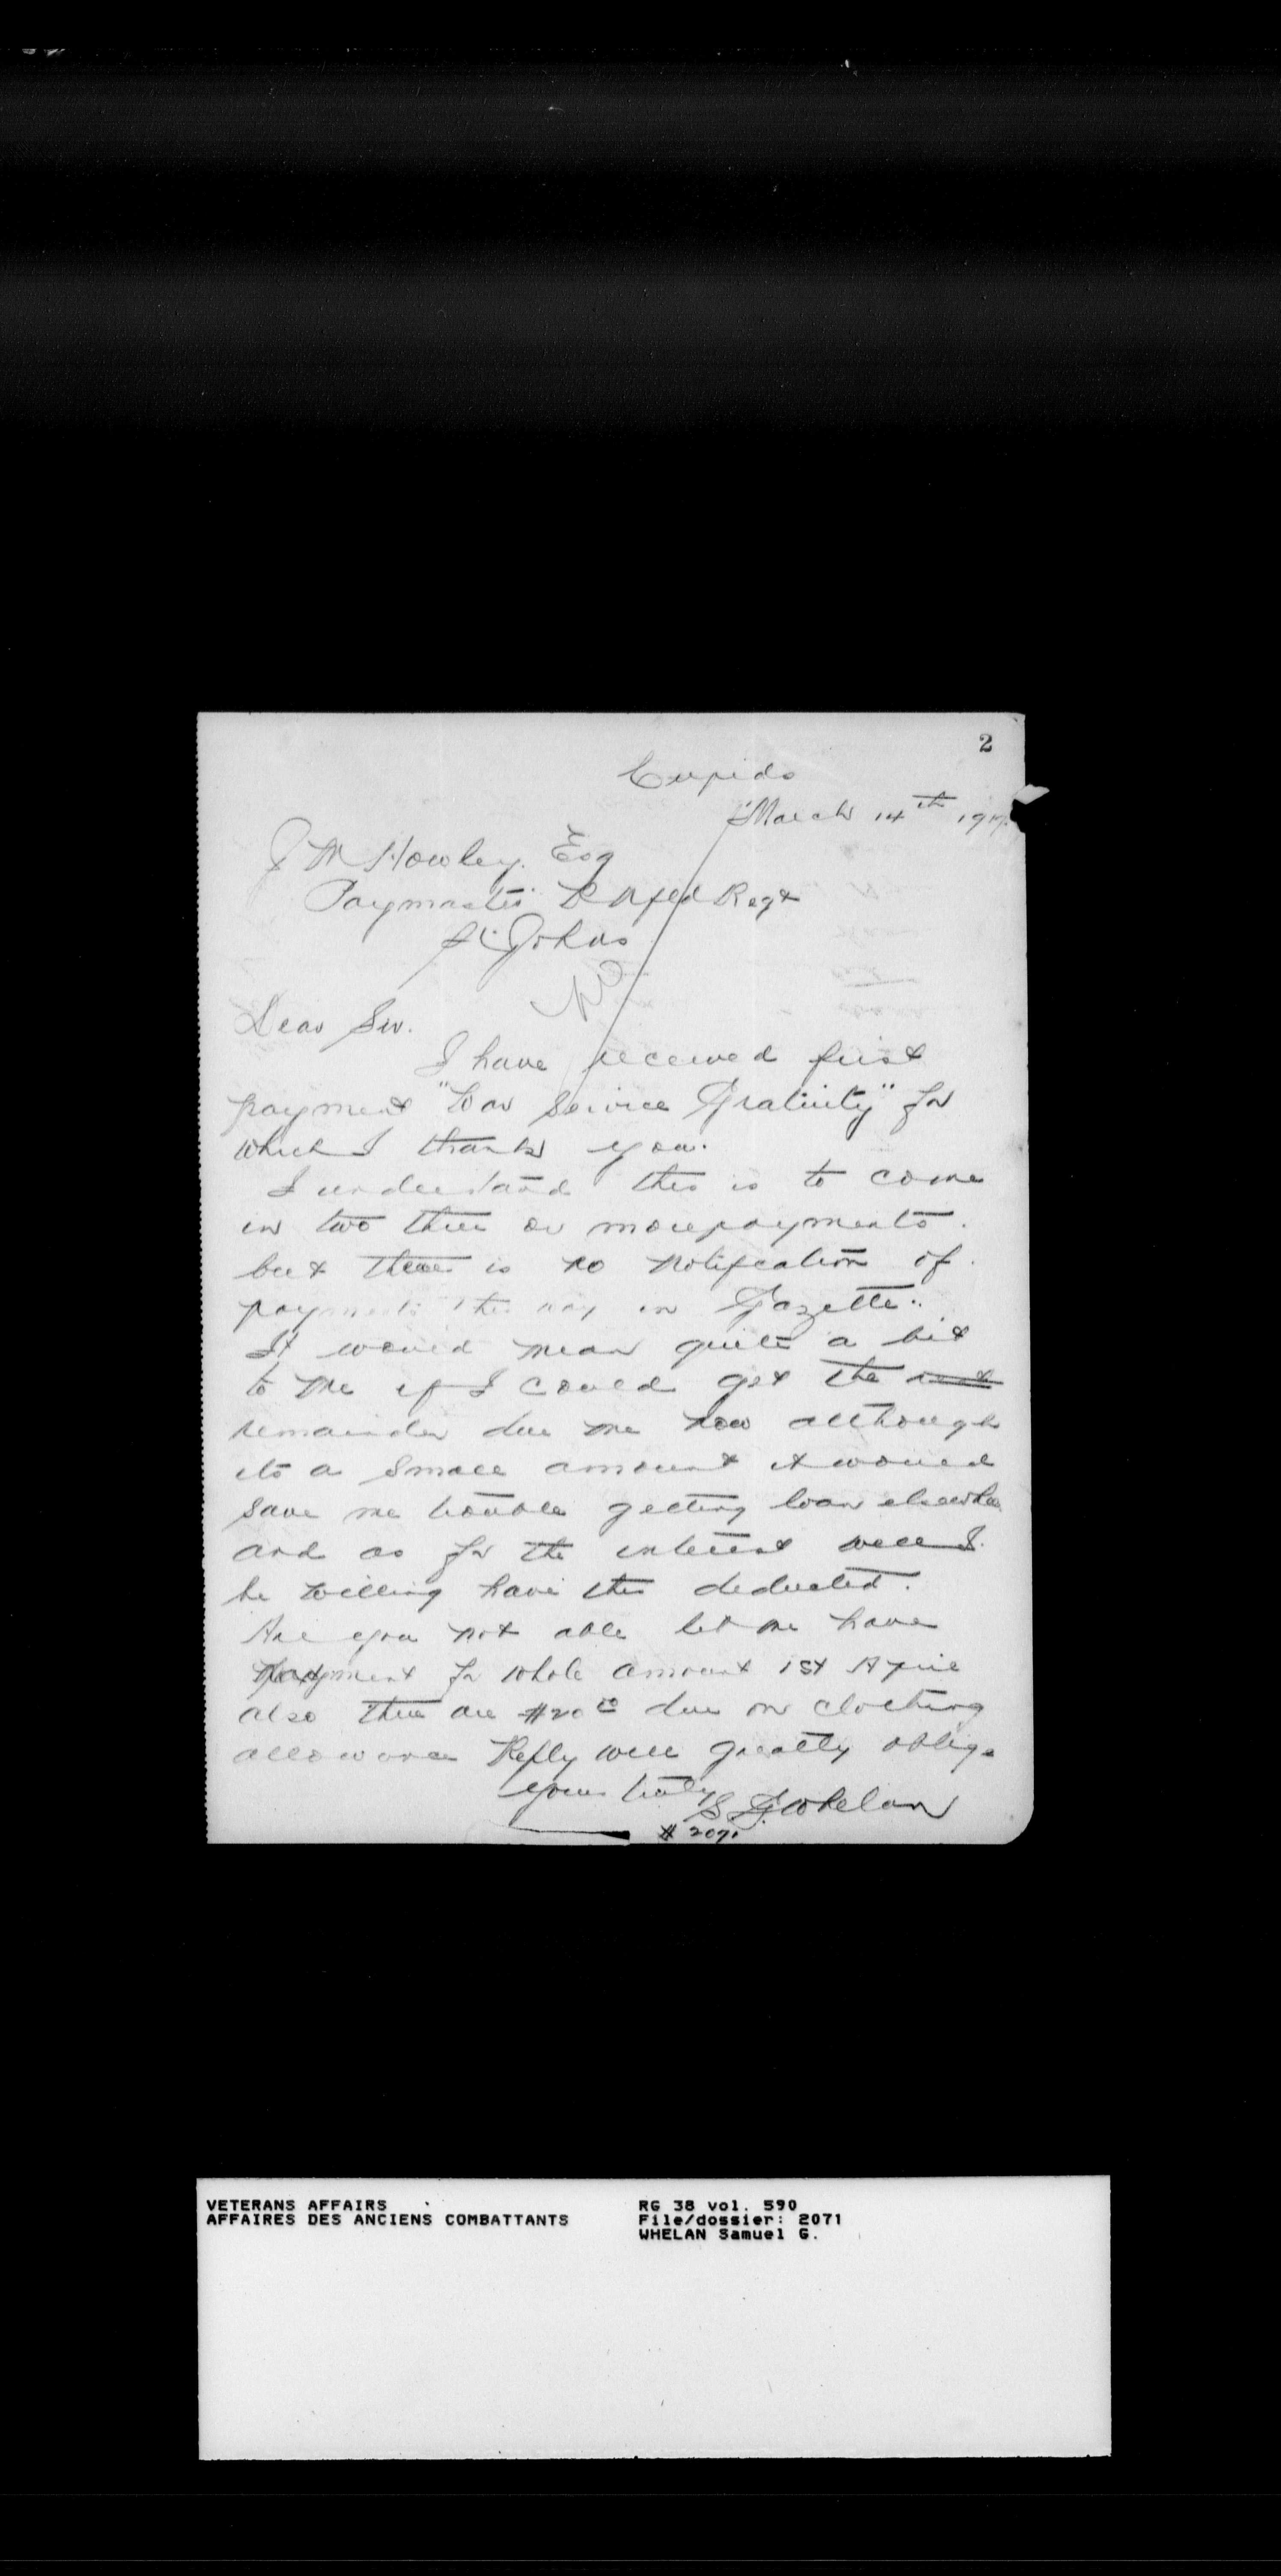 2
Cupids
March 14th 191
J M Howley. Esq
Paymaster R Nfld Regt
St. Johns
Dear Sir.
I have received first
payment "War Service Gratuity" for
which I thank you.
I understand this is to come
in two three or more payments.
but there is no notification of
payments this way in Gazette.
It would mean quite a bit
to me if I could get the rest
remainder due me now although
its a small amount it would
save me trouble getting loan elsewhere
and as for the interest well I
be willing have this deducted.
Are you not able let me have
payment for whole amount 1st April
also there are $20.00 due on clothing
allowance Reply will greatly oblige
yours truly
S G Whelan
# 2071
VETERANS AFFAIRS
AFFAIRES DES ANCIENS COMBATTANTS
RG 38 vol. 590
File/dossier: 2071
WHELAN Samuel G.